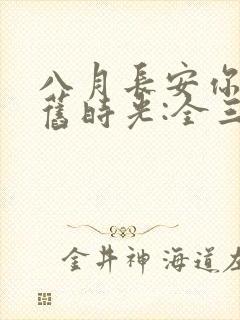 八月長安你
舊時光:全三
金井神 海道左